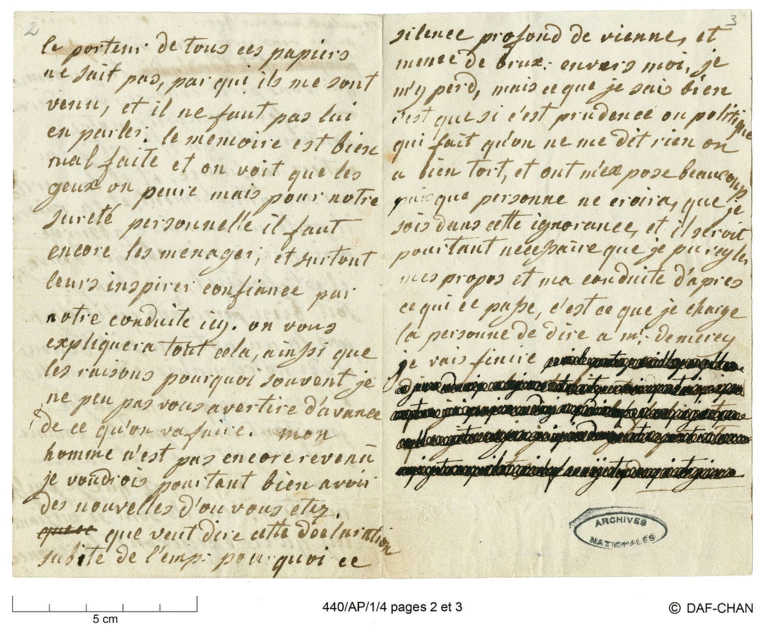 2
le porteur de tous ces papiers
ne sait pas, par qui ils me sont
venu, et il ne faut pas lui
en parler. le mémoire est bien
mal faite et on voit que les
geux on peure mais pour notre
sureté personnelle il faut
encore les menager, et surtout
leurs inspirer confiance par
notre conduite icy. on vous
expliquera tout cela, ainssi que
les raisons pourquoi souvent je
ne peu pas vous avertire d'avance
de ce qu'on va faire. mon
homme n'est pas encore revenu
je voudrois pourtant bien avoir
des nouvelles d'ou vous etez.
que veut dire cette declaration
subite de l'emp: pourquoi ce
3
silence profond de vienne, et
meme de brux: envers moi, je
m'y perd, mais ce que je sais bien
c'est que si c'est prudence ou politique
qui fait qu'on ne me dit rien on
a bien tort, et ont m'expose beaucoup
puisque personne ne croira, que je
sois dans cette ignorance, et il seroit
pourtant necessaire que je pu regler
mes propos et ma conduite d'apres
ce qui ce passe, c'est ce que je charge
la personne de dire a mr: de mercy
je vais finire
ARCHIVES
NATIONALES
5 cm
440/AP/1/4 pages 2 et 3
© DAF-CHAN